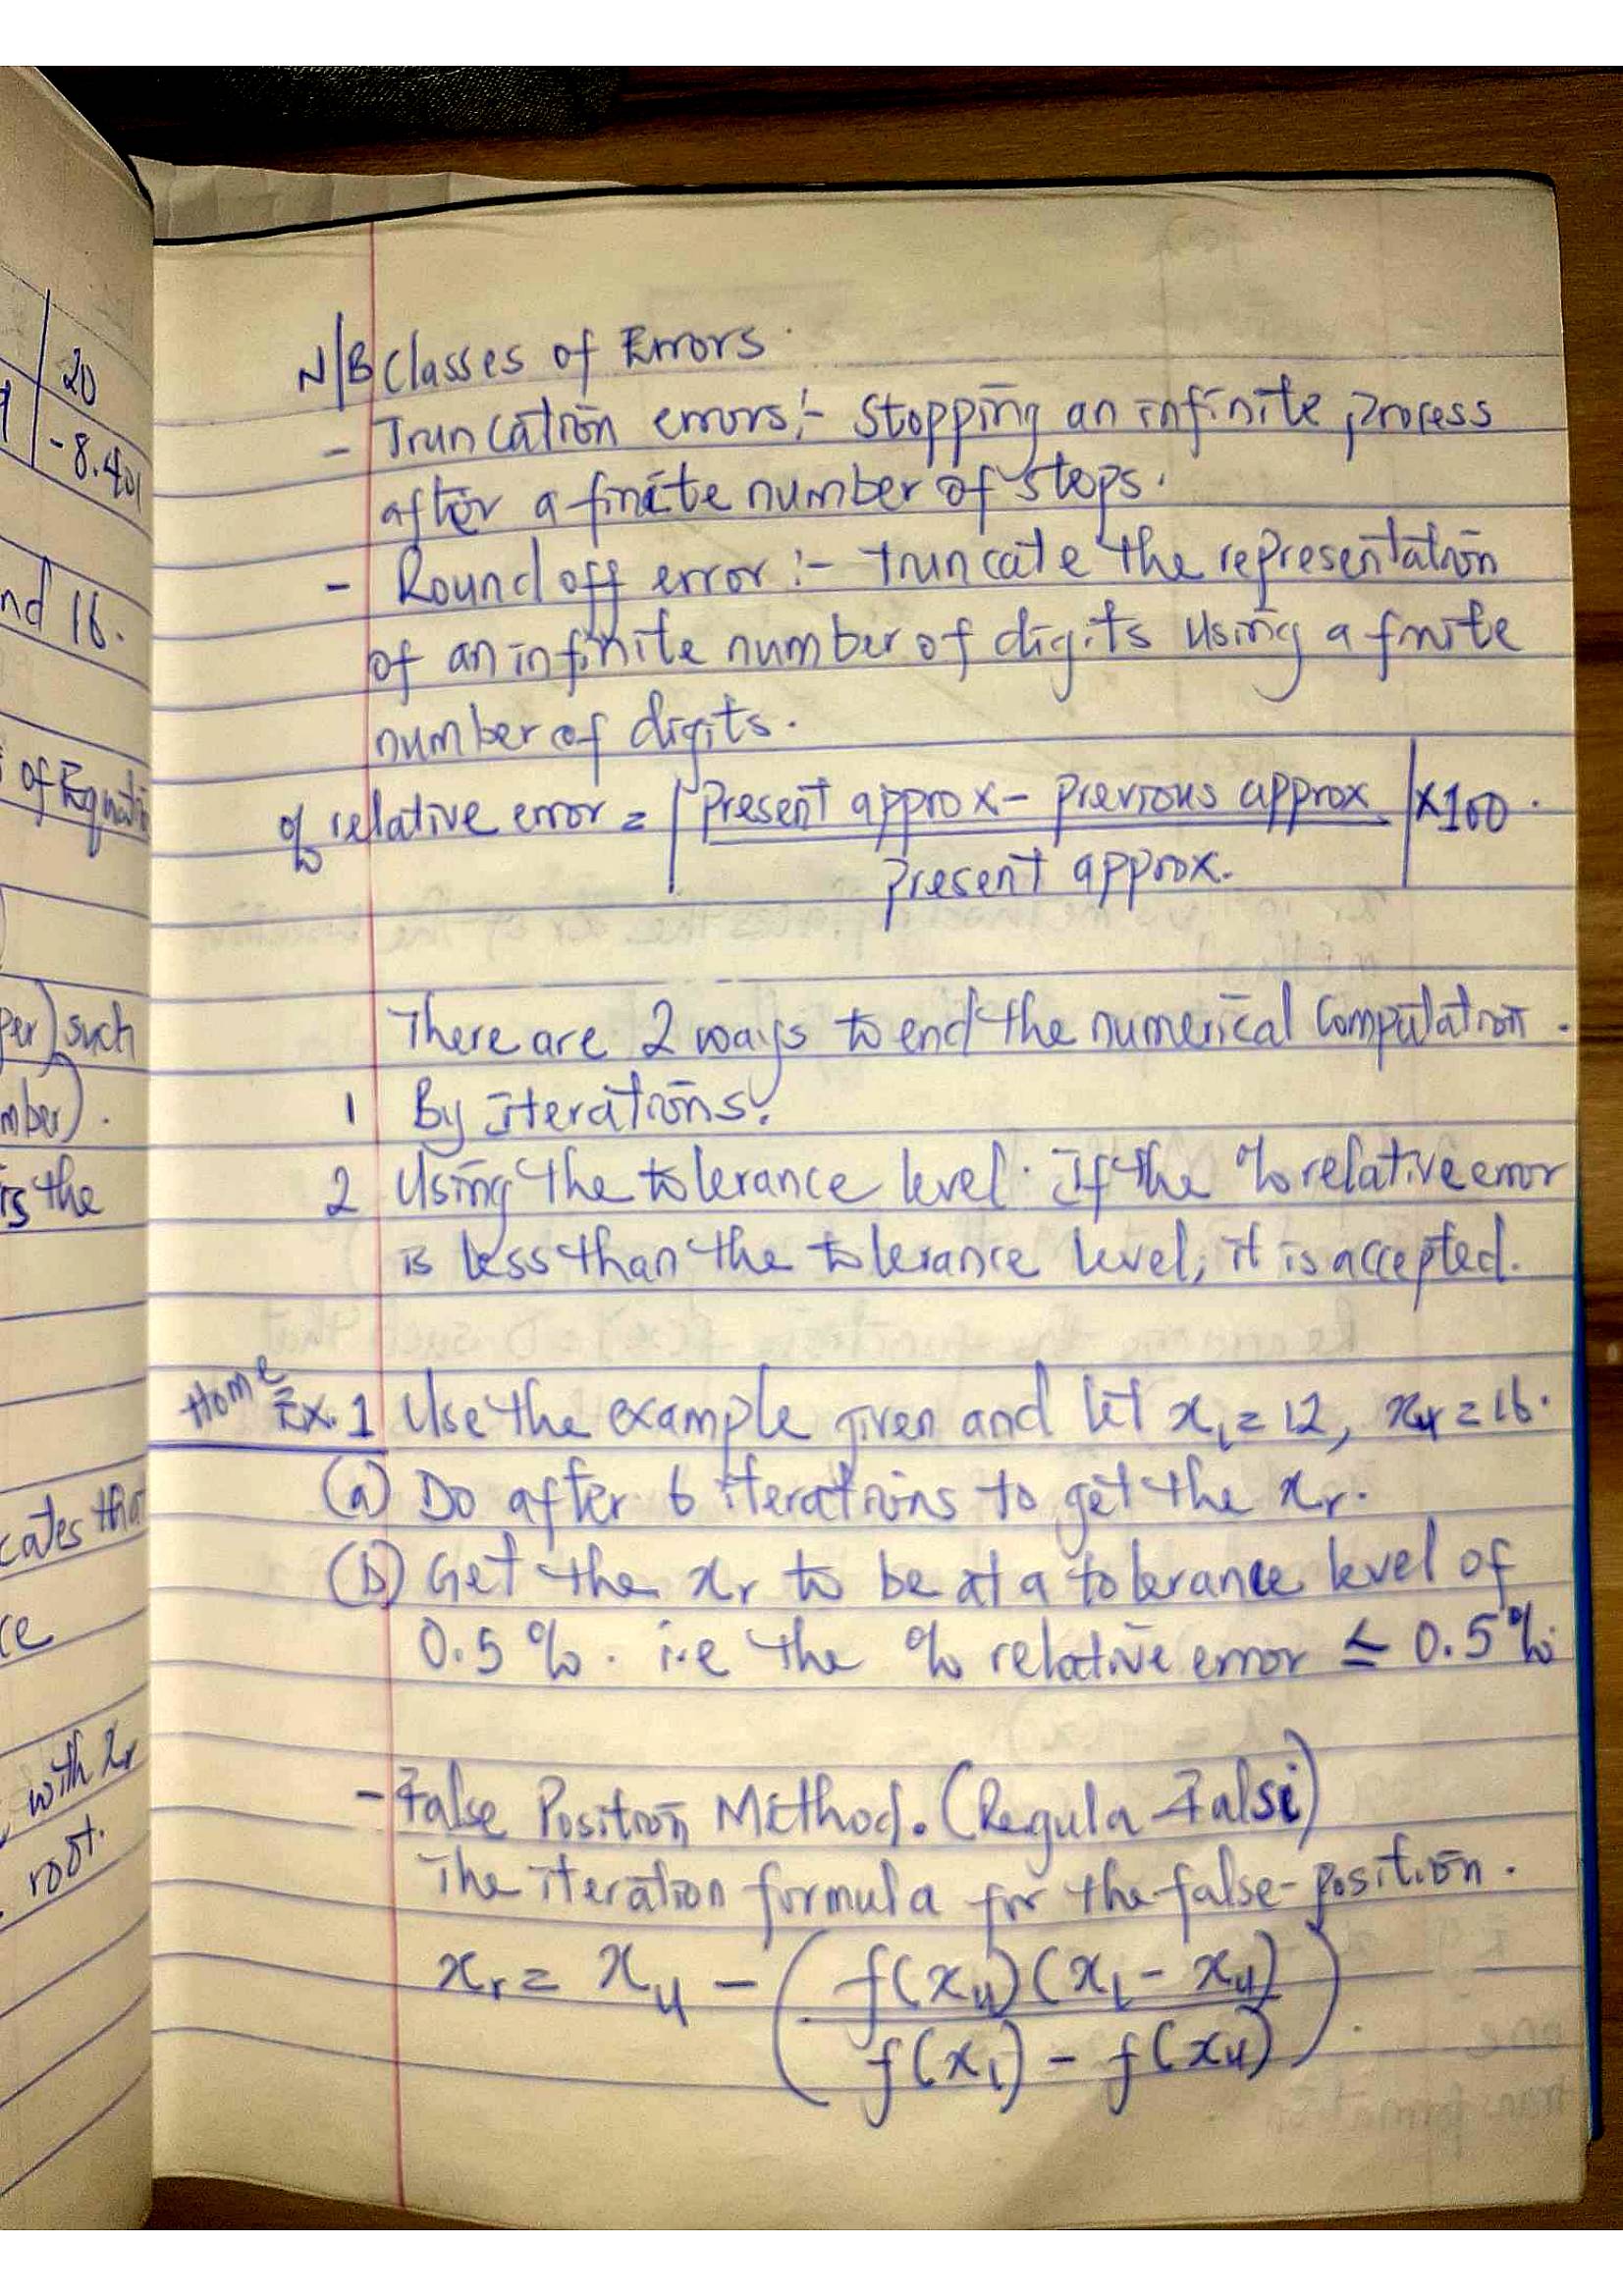 20
-8.401
nd 16.
of Equati
per) such
mber).
is the
cates tha
ce
with xr
root.
N/B Classes of Errors.
- Truncation errors:- Stopping an infinite process
after a finite number of steps.
- Round off error :- Truncate the representation
of an infinite number of digits using a finite
number of digits.
% relative error = | Present approx - Previous approx / Present approx. | × 100.
There are 2 ways to end the numerical Computation.
1 By iterations.
2 Using the tolerance level. If the % relative error
is less than the tolerance level, it is accepted.
Home Ex. 1 Use the example given and let xl = 12, xu = 16.
(a) Do after 6 iterations to get the xr.
(b) Get the xr to be at a tolerance level of
0.5 %. i.e the % relative error ≤ 0.5%
- False Position Method. (Regula Falsi)
The iteration formula for the false-position.
xr = xu - ( f(xu)(xl - xu) / f(xl) - f(xu) ).